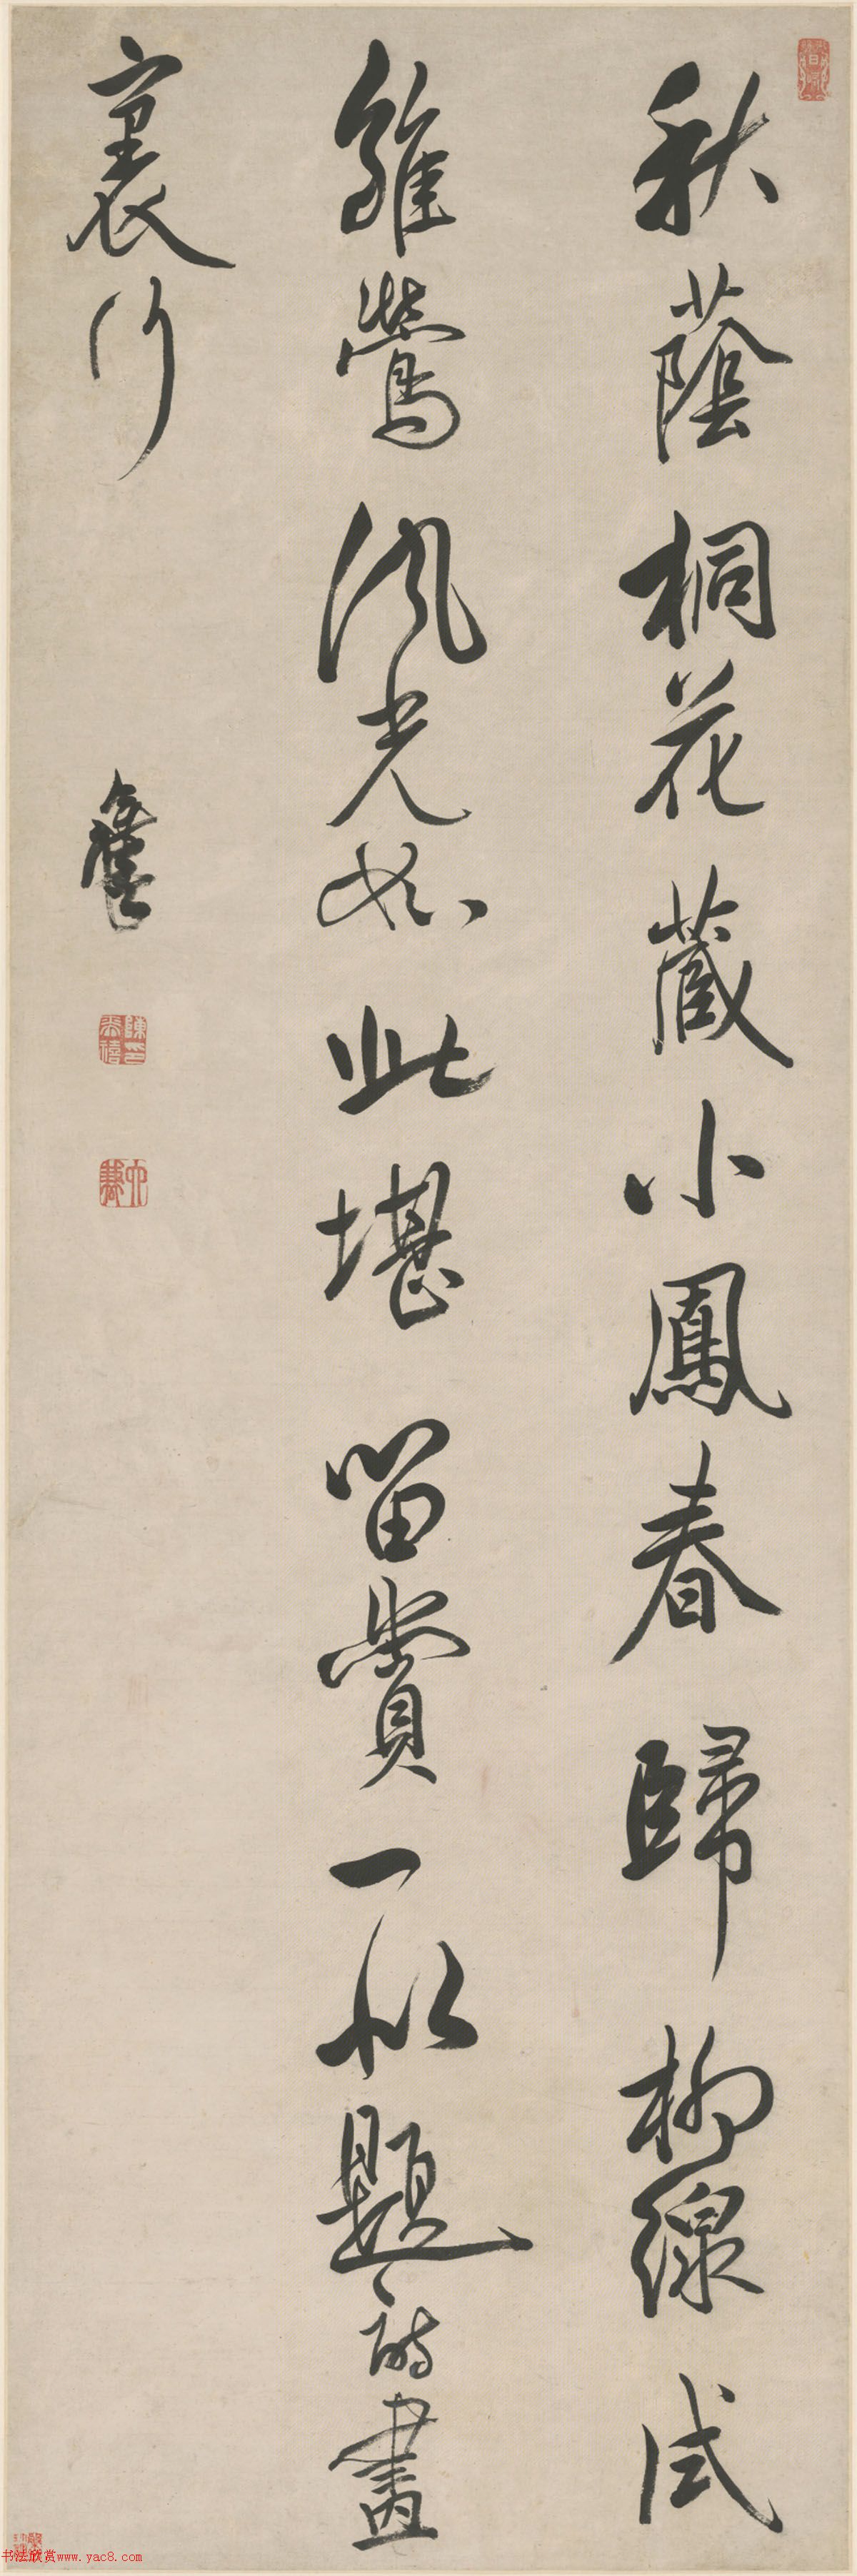 秋蔭桐花藏小鳳春歸柳線試
雛鶯風光如此堪留賞一似題詩畫
裏行
陳奕禧印
六謙
书法欣赏www.yac8.com